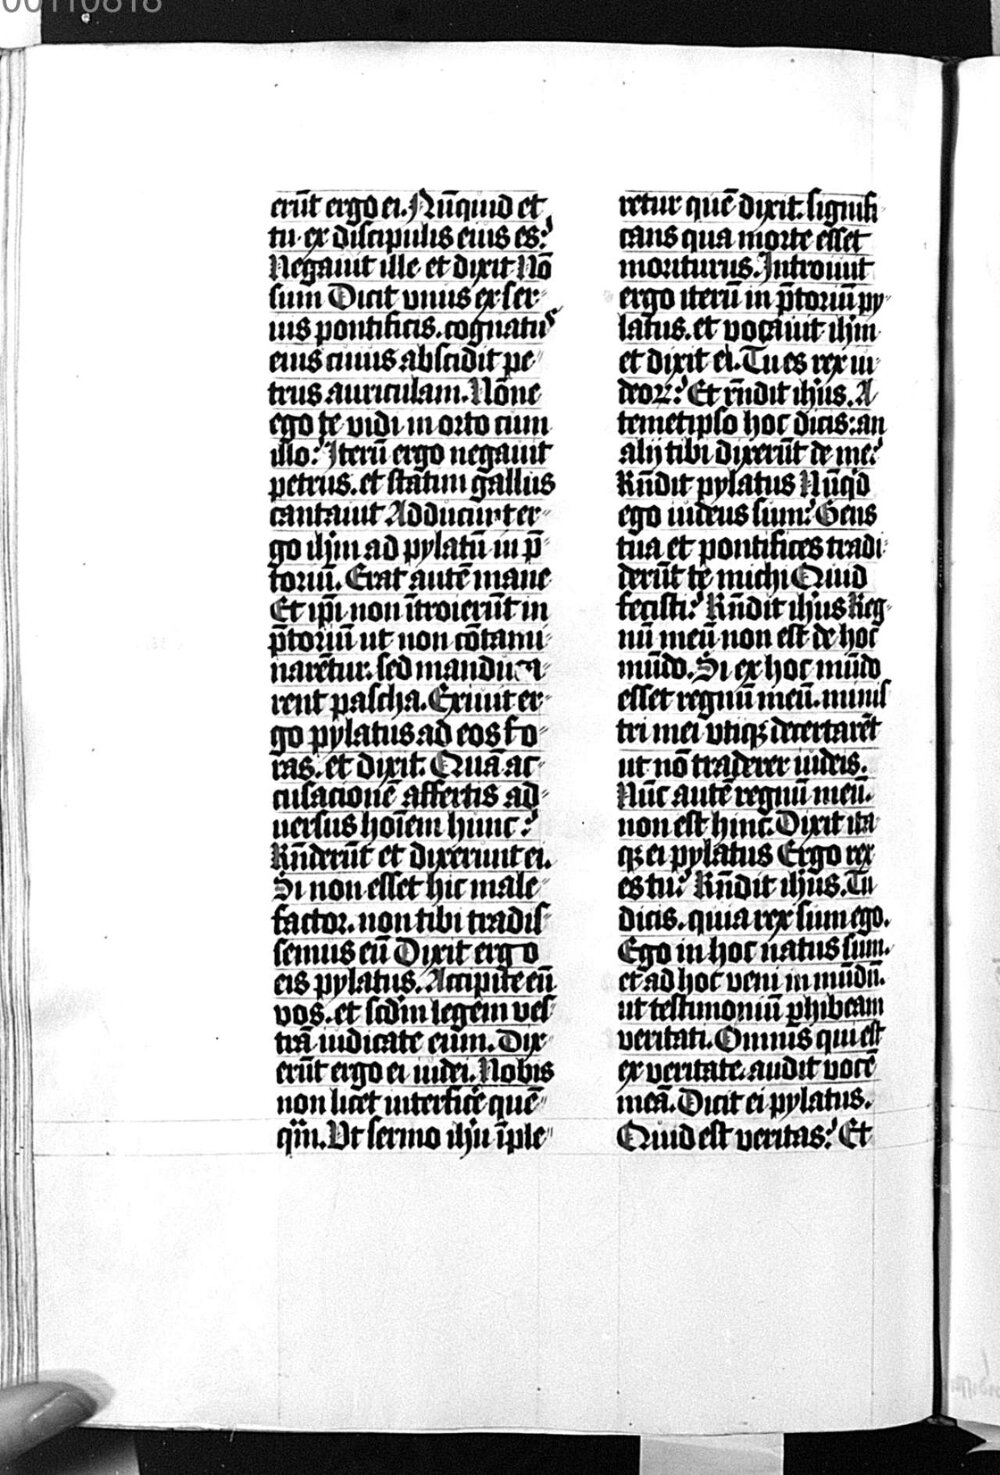 00110818
erūt ergo ei. Nūquid et
tu ex discipulis eius es?
Negauit ille et dixit Nō
sum Dicit vnus ex ser-
uis pontificis. cognatus
eius cuius abscidit pe-
trus auriculam. Nōne
ego te vidi in orto cum
illo? Iterū ergo negauit
petrus. et statim gallus
cantauit Adducunt er-
go ihm̄ ad pylatū in p̄-
toriū. Erat autē mane
Et ip̄i non ītroierūt in
p̄toriū ut non cōtami-
narētur. sed manduca-
rent pascha. Exiuit er-
go pylatus ad eos fo-
ras. et dixit. Quā ac-
cusacionē affertis ad-
uersus hoīem hunc?
Rn̄derūt et dixerunt ei.
Si non esset hic male-
factor. non tibi tradis-
semus eū Dixit ergo
eis pylatus. Accipite eū
vos. et scdm legem ves-
trā iudicate eum. Dix-
erūt ergo ei iudei. Nobis
non licet interficē quē-
qm̄. Vt sermo ihū īple-
retur quē dixit. signifi-
cans qua morte esset
moriturus. Introiuit
ergo iterū in p̄toriū py-
latus. et vocauit ihm̄
et dixit ei. Tu es rex iu-
deoꝝ? Et rn̄dit ihūs. A
temetipso hoc dicis: an
alij tibi dixerūt de me?
Rn̄dit pylatus Nūqd
ego iudeus sum? Gens
tua et pontifices tradi-
derūt te michi Quid
fecisti? Rn̄dit ihūs Reg-
nū meū non est de hoc
mūdo. Si ex hoc mūdo
esset regnū meū. minis-
tri mei vtiqꝫ decertarēt
ut nō traderer iudeis.
Nūc autē regnū meū.
non est hinc. Dixit ita
qꝫ ei pylatus Ergo rex
es tu? Rn̄dit ihūs. Tu
dicis. quia rex sum ego.
Ego in hoc natus sum.
et ad hoc veni in mūdū.
ut testimoniū ꝑhibeam
veritati. Omnis qui est
ex veritate. audit vocē
meā. Dicit ei pylatus.
Quid est veritas? Et